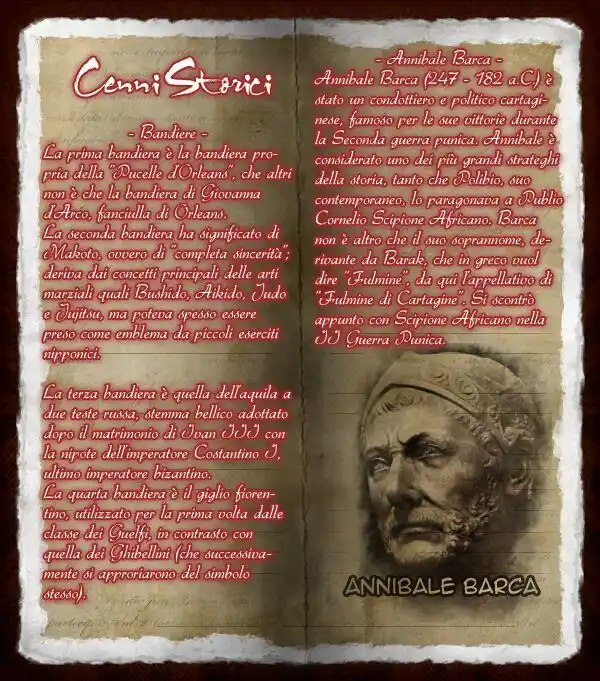 Cenni Storici
- Bandiere -
La prima bandiera è la bandiera pro-
pria della "Pucelle d'Orleans", che altri
non è che la bandiera di Giovanna
d'Arco, fanciulla di Orleans.
La seconda bandiera ha significato di
Makoto, ovvero di "completa sincerità";
deriva dai concetti principali delle arti
marziali quali Bushido, Aikido, Judo
e Jujitsu, ma poteva spesso essere
preso come emblema da piccoli eserciti
nipponici.
La terza bandiera è quella dell'aquila a
due teste russa, stemma bellico adottato
dopo il matrimonio di Ivan III con
la nipote dell'imperatore Costantino I,
ultimo imperatore bizantino.
La quarta bandiera è il giglio fioren-
tino, utilizzato per la prima volta dalle
classe dei Guelfi, in contrasto con
quella dei Ghibellini (che successiva-
mente si approriarono del simbolo
stesso).
- Annibale Barca -
Annibale Barca (247 - 182 a.C) è
stato un condottiero e politico cartagi-
nese, famoso per le sue vittorie durante
la Seconda guerra punica. Annibale è
considerato uno dei più grandi strateghi
della storia, tanto che Polibio, suo
contemporaneo, lo paragonava a Publio
Cornelio Scipione Africano. Barca
non è altro che il suo soprannome, de-
rivante da Barak, che in greco vuol
dire "Fulmine", da qui l'appellativo di
"Fulmine di Cartagine". Si scontrò
appunto con Scipione Africano nella
II Guerra Punica.
ANNIBALE BARCA